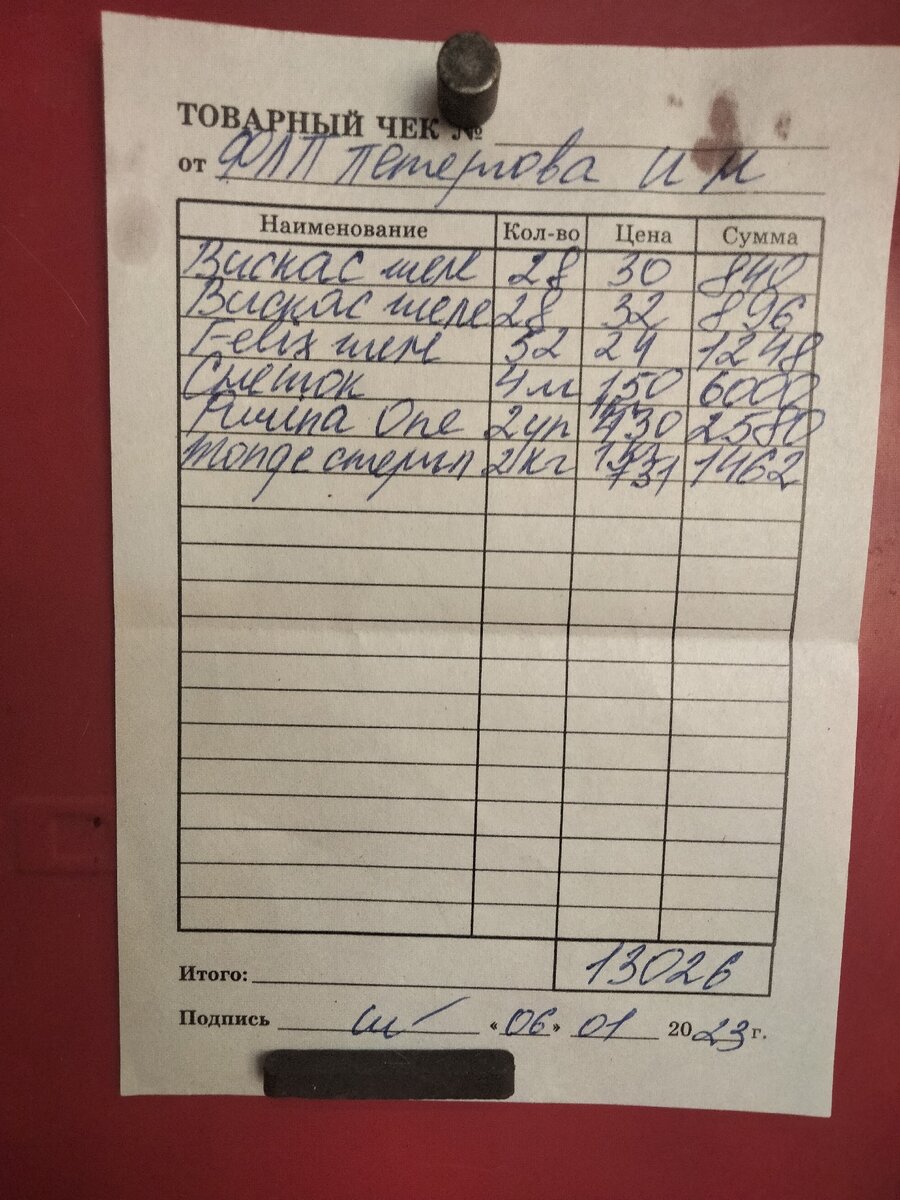 ТОВАРНЫЙ ЧЕК №
от ФЛП Петерпова И М
Наименование Кол-во Цена Сумма
Вискас желе 28 30 840
Вискас желе 28 32 896
Felix желе 52 24 1248
Снежок 4м 150 6000
Purina One 2уп 2580
Monge стерил 2кг 731 1462
Итого: 13026
Подпись «06» 01 2023 г.